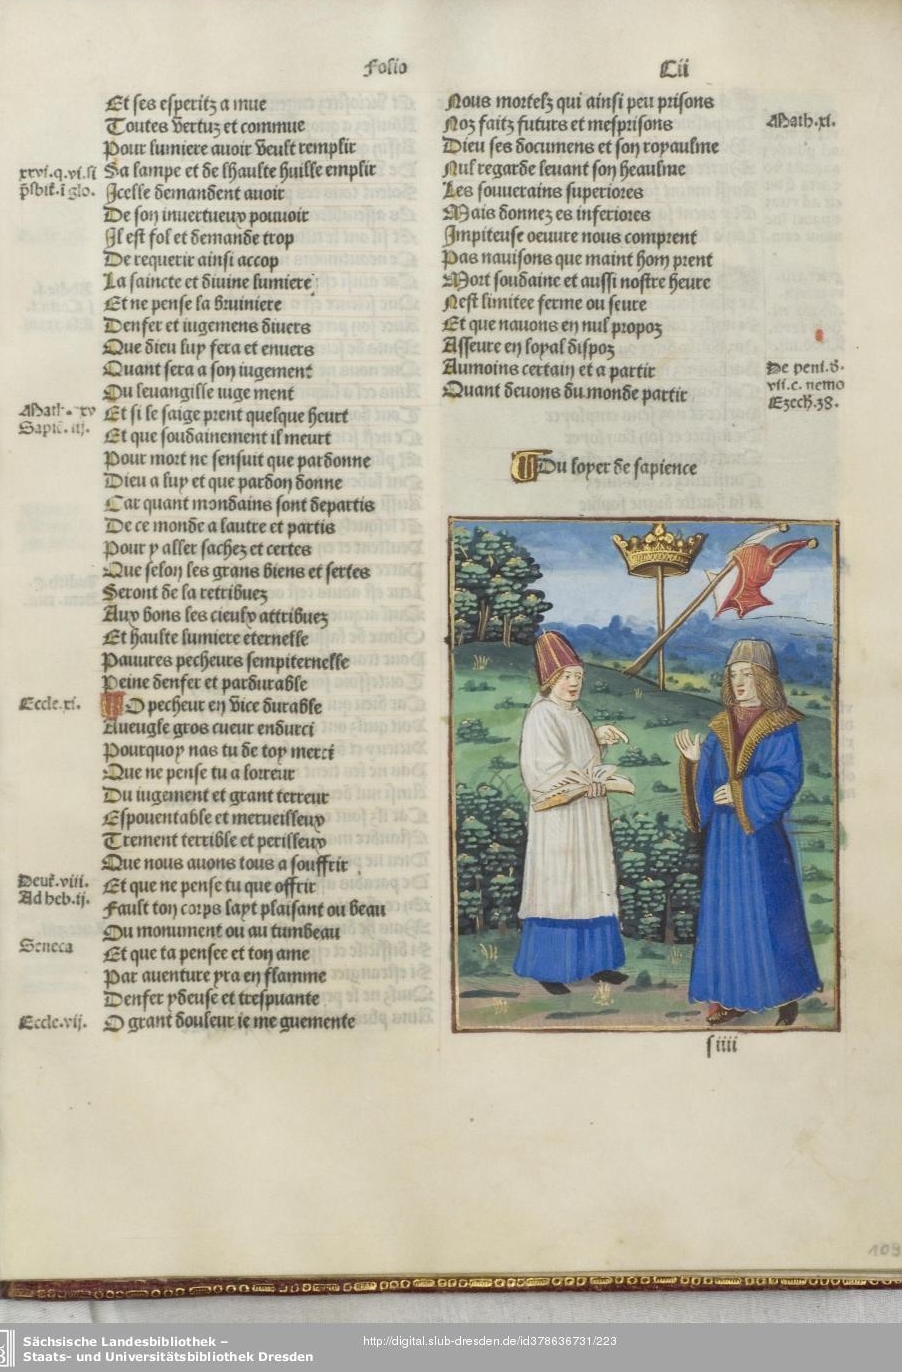 Folio
Cii
Et ses esperitz a mue
Toutes vertuz et commue
Pour lumiere avoir veult remplir
Sa lampe et de lhaulte huille emplir
Icelle demandent avoir
De son invertueux pouvoir
Il est fol et demande trop
De requerir ainsi accop
La saincte et divine lumiere
Et ne pense la bruiniere
Denfer et iugemens divers
Que dieu luy fera et envers
Quant sera a son iugement
Ou levangille iuge ment
Et si le saige prent quelque heurt
Et que soudainement il meurt
Pour mort ne sensuit que pardonne
Dieu a luy et que pardon donne
Car quant mondains sont departis
De ce monde a lautre et partis
Pour y aller sachez et certes
Que selon les grans biens et sertes
Seront de la retribuez
Aux bons les cieulx attribuez
Et haulte lumiere eternelle
Pauures pecheurs sempiternelle
Peine denfer et pardurable
O pecheur en vice durable
Aueugle gros cueur endurci
Pourquoy nas tu de toy merci
Que ne pense tu a lorreur
Du iugement et grant terreur
Espouentable et merueilleux
Trement terrible et perilleux
Que nous auons tous a souffrir
Et que ne pense tu que offrir
Fault ton corps layt plaisant ou beau
Ou monument ou au tumbeau
Et que ta pensee et ton ame
Par aventure yra en flamme
Denfer ydeuse et trespuante
O grant douleur ie me guemente
xxvi.q.vi.si
p̄sbit̄.ī glo.
Math. xv
Sapiē. iij.
Eccle.xi.
Deut̄.viii.
Ad heb.ij.
Seneca
Eccle.vij.
Nous mortelz qui ainsi peu prisons
Noz faitz futurs et mesprisons
Dieu ses documens et son royaulme
Nul regarde levant son heaulme
Les souverains superiores
Mais donnez es inferiores
Impiteuse oeuure nous comprent
Pas navisons que maint hom prent
Mort soudaine et aussi nostre heure
Nest limitee ferme ou seure
Et que navons en nul propoz
Asseure en loyal dispoz
Aumoins certain et a partir
Quant devons du monde partir
Math.xi.
De peni.d.
vii.c. nemo
Ezech.38.
Du loyer de sapience
siiii
109
Sächsische Landesbibliothek –
Staats- und Universitätsbibliothek Dresden
http://digital.slub-dresden.de/id378636731/223